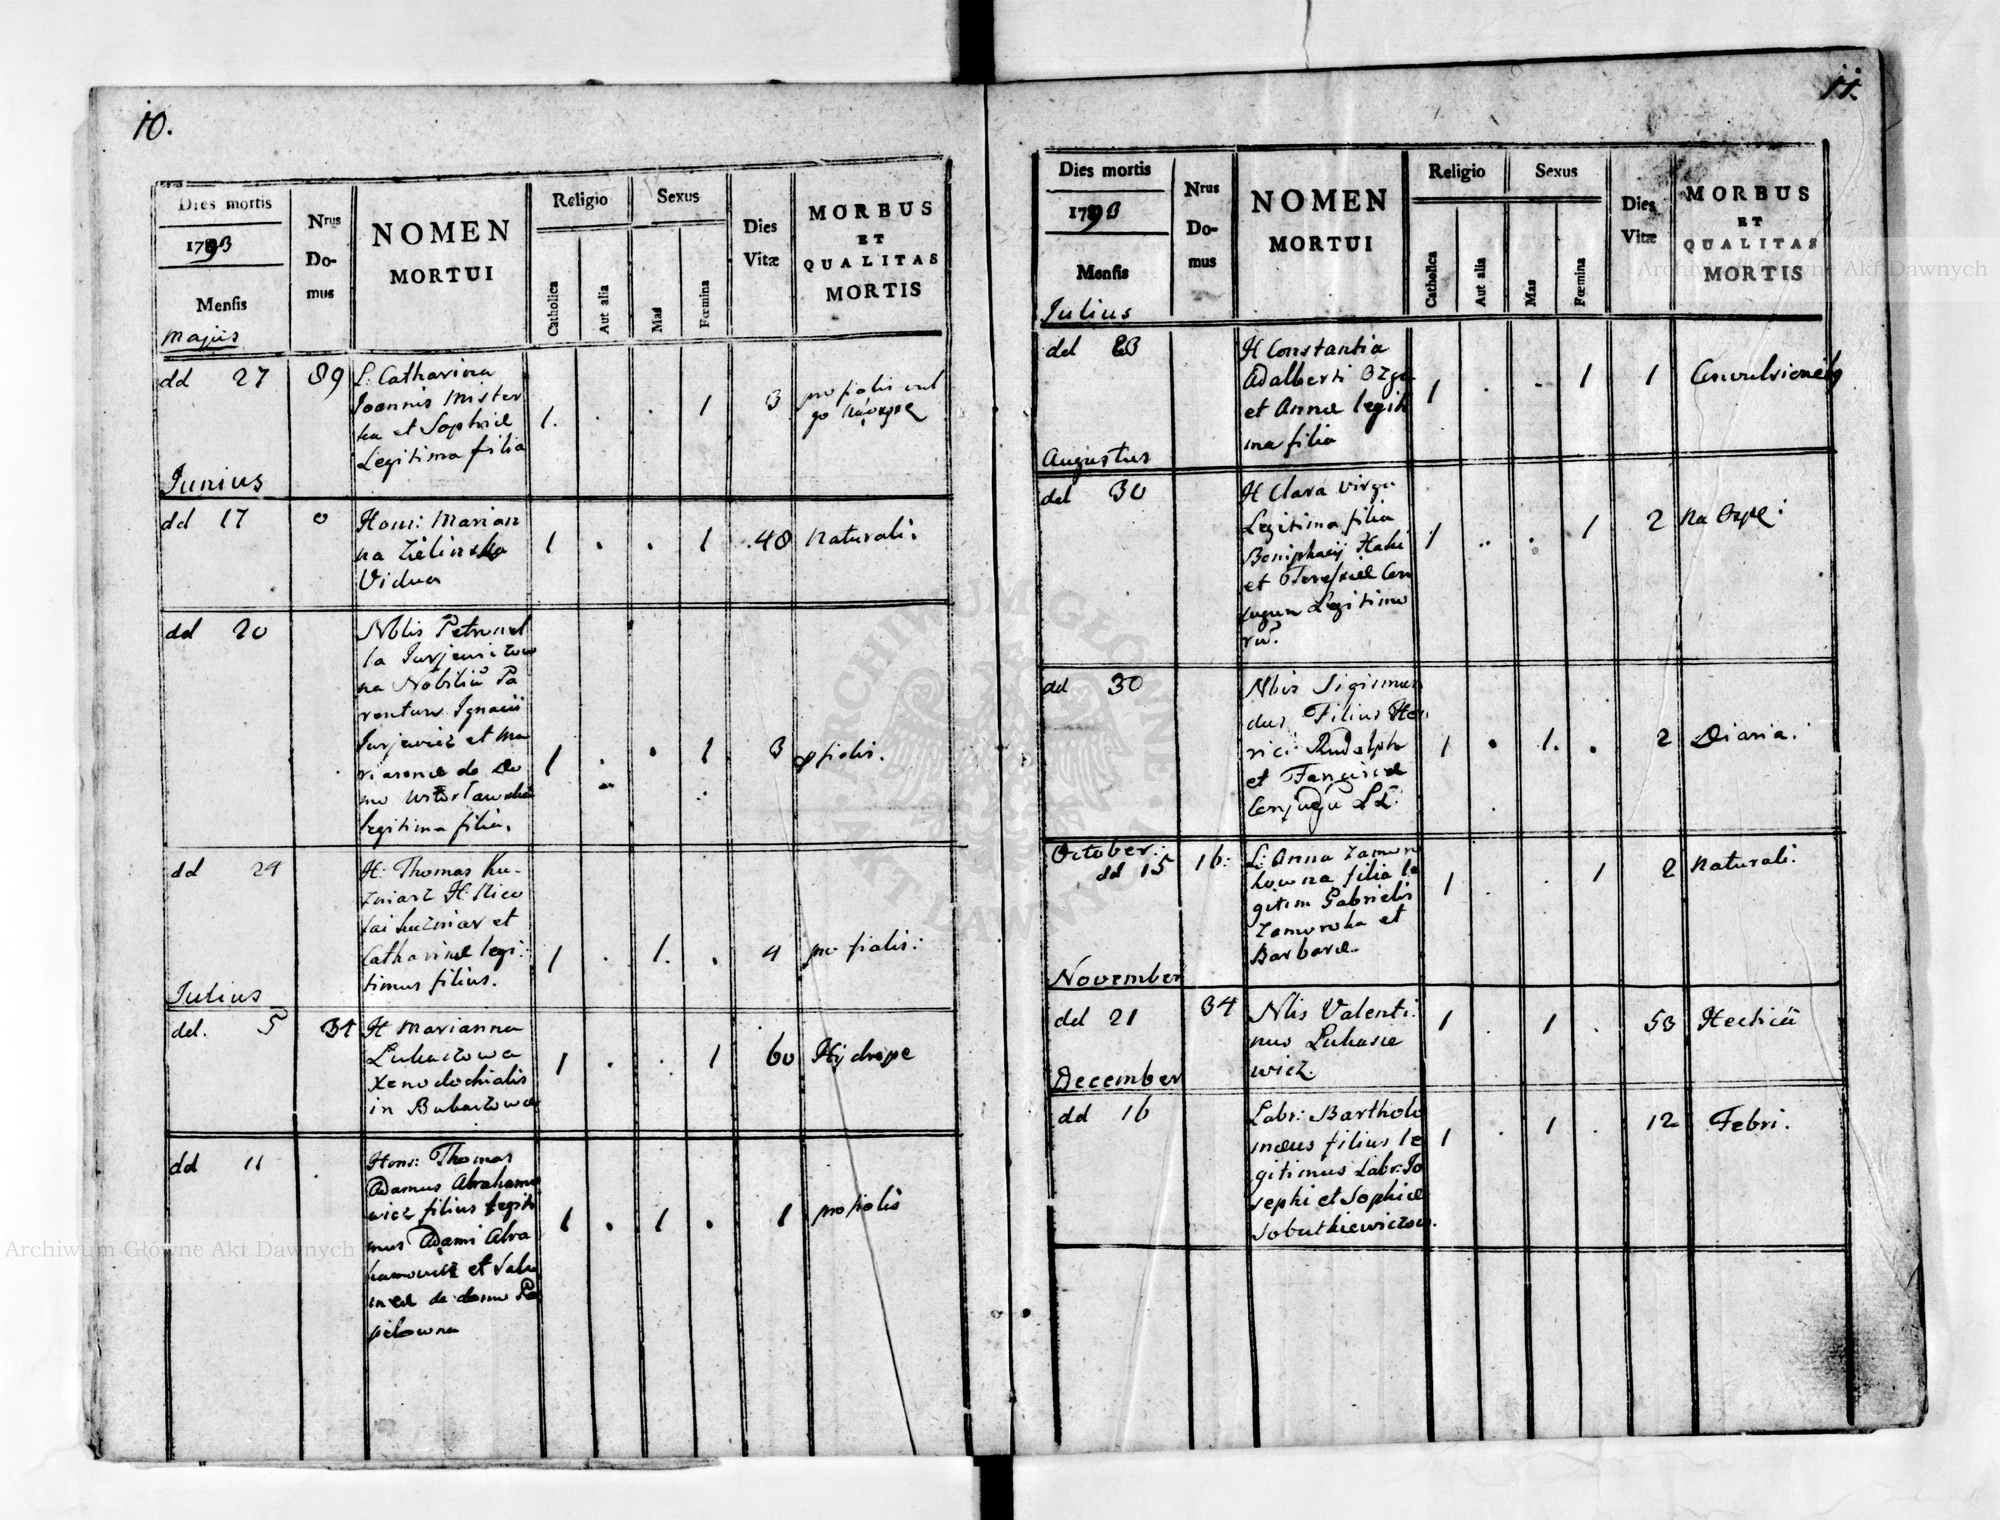 10.
Dies mortis
1793
Mensis
Majus
Nrus
Do-
mus
NOMEN
MORTUI
Religio
Catholica
Aut alia
Sexus
Mas
Fœmina
Dies
Vitæ
MORBUS
ET
QUALITAS
MORTIS
dd 27 89 L: Catharina
Joannis Mister
ka et Sophiæ
Legitima filia
1. . . 1 3
Junius
dd 17 0 Hon: Marian
na Zielinska
Vidua
1 . . 1 48 Naturali:
dd 20 Nblis Petronel
la Jurjewiczow
na Nobiliū Pa
rentum Ignacii
Jurjewicz et Ma
riannæ de Do
mo
legitima filia.
1 . . 1 3
dd 29 H: Thomas Ku-
zniarz H: Nico
lai Kuzniar et
Catharinæ legi:
timus filius.
1 . 1. . 4
Julius
dd. 5 34 H Marianna
Lukaszowa
Xenodochialis
in
1 . . 1 60 Hydrope
dd 11 Hon: Thomas
Adamus Abrahamo
wicz filius legiti
mus Adami Abra
hamowicz et Salo
meæ de domo Po
pielowna
1 . 1 . 1
11.
Dies mortis
1793
Mensis
Julius
Nrus
Do-
mus
NOMEN
MORTUI
Religio
Catholica
Aut alia
Sexus
Mas
Fœmina
Dies
Vitæ
MORBUS
ET
QUALITAS
MORTIS
dd 23 H Constantia
Adalberti Ozga
et Annæ legiti
ma filia
1 . . 1 1
Augustus
dd 30 H Clara virgo
Legitima filia
Boniphacij
et
Legitimo
1 .. . 1 2 Na Ospe:
dd 30 Nblis Sigismun
dus Filius Hen
rici Rudolph
et
1 . 1. . 2 Diaria.
October:
dd 15 16: L: Anna Zamor
kowna filia le
gitim Gabrielis
Zamorska et
Barbaræ.
1 . . 1 2 Naturali.
November
dd 21 34 Nblis Valenti:
nus Lukasie
wicz.
1 . 1 . 53
December
dd 16 Labr: Bartholo
mæus filius le
gitimus Labr: Jo
sephi et Sophiæ
Sobutkiewiczow.
1 . 1 . 12 Febri.
ARCHIWUM GŁÓWNE AKT DAWNYCH
Archiwum Główne Akt Dawnych
Archiwum Główne Akt Dawnych